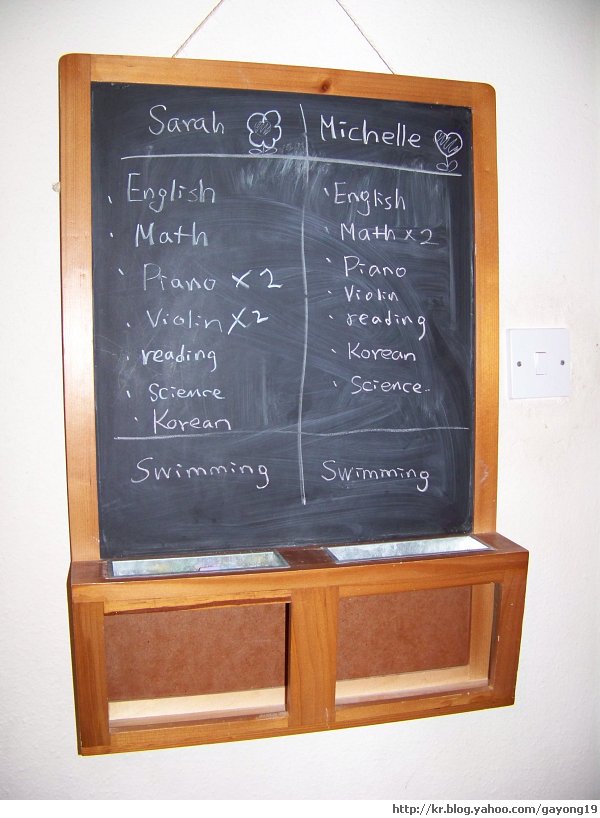 Sarah
English
Math
Piano x 2
Violin x2
reading
Science
Korean
Swimming
Michelle
English
Math x 2
Piano
Violin
reading
Korean
Science..
Swimming
http://kr.blog.yahoo.com/gayong19